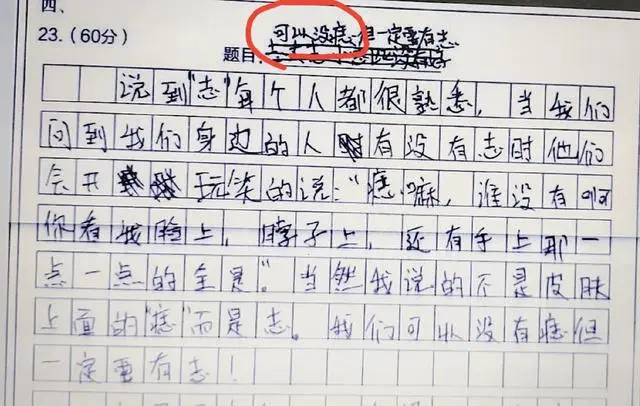 四、
23.(60分)
可以没痣但一定要有志
题目:
说到“志”每个人都很熟悉,当我们
问到我们身边的人有没有志时他们
会开玩笑的说:“痣嘛,谁没有啊
你看我脸上,脖子上,还有手上那一
点一点的全是”。当然我说的不是皮肤
上面的“痣”而是志。我们可以没有痣但
一定要有志!